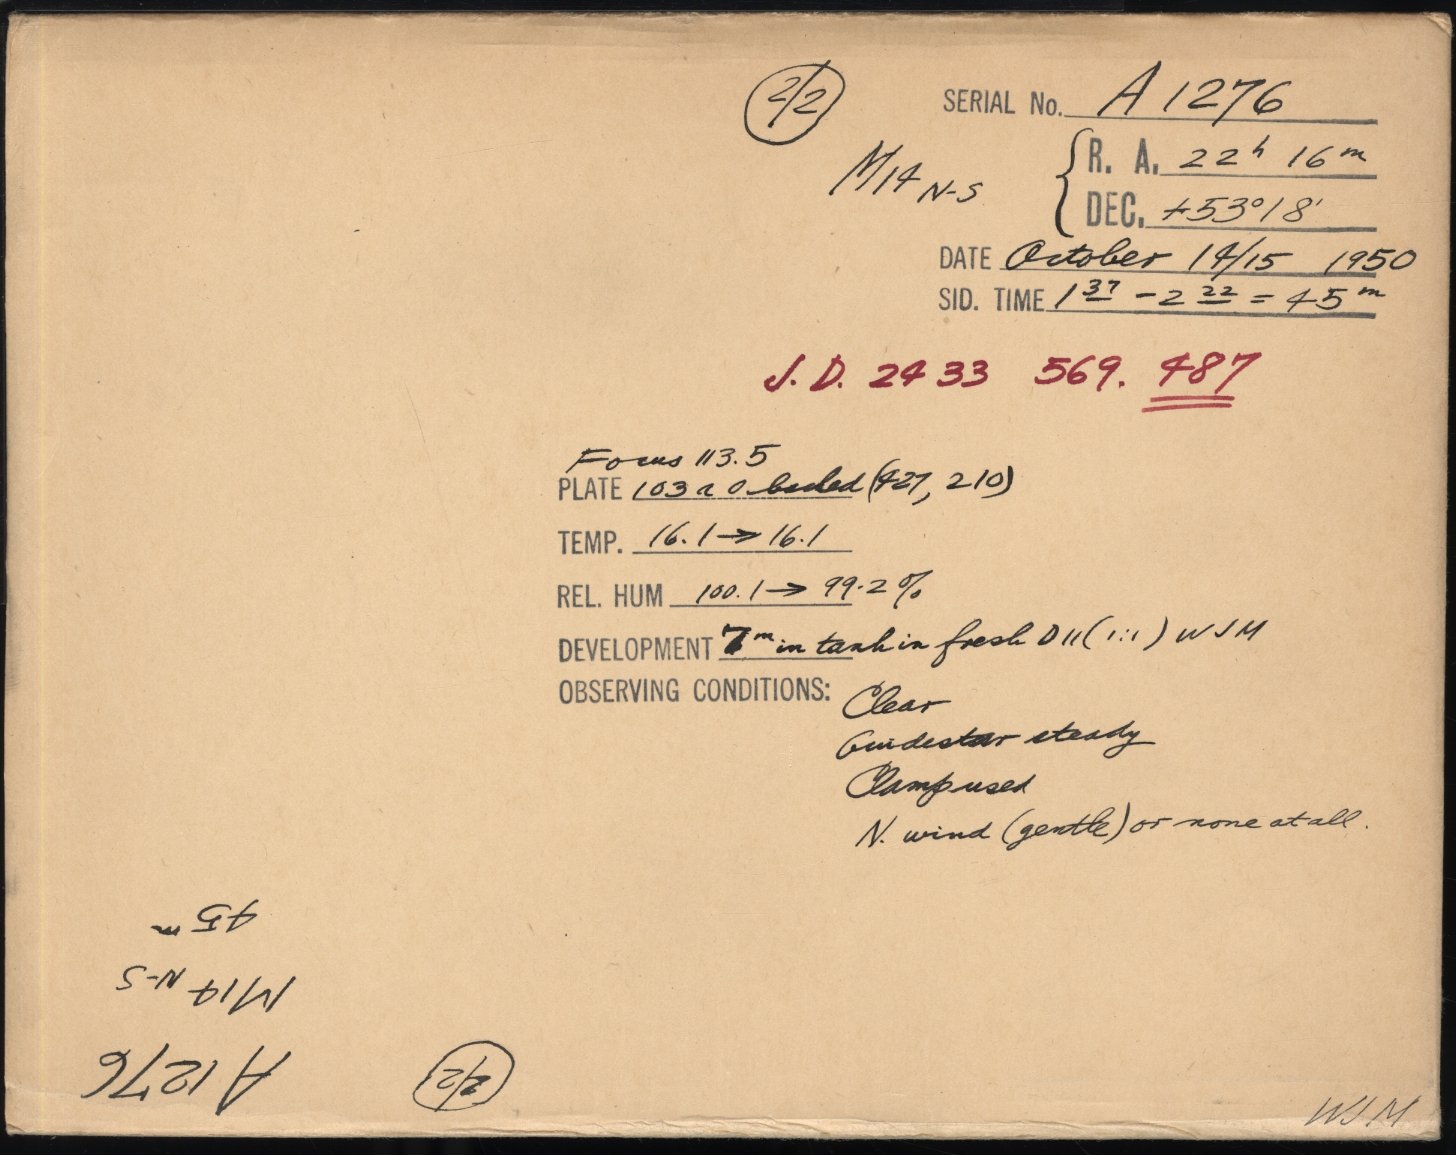 2/2
SERIAL No. A 1276
M14 N-S
R. A. 22h 16m
DEC. +53°18'
DATE October 14/15 1950
SID. TIME 1 37 - 2 22 = 45 m
J. D. 24 33 569. 487
Focus 113.5
PLATE 103 a O baked (427, 210)
TEMP. 16.1 → 16.1
REL. HUM 100.1 → 99.2 %
DEVELOPMENT 7m in tank in fresh D11 (1:1) WJM
OBSERVING CONDITIONS: Clear
Guidestar steady
Clamp used
N. wind (gentle) or none at all.
A1276
M14 N-S
45 m
2/2
WJM